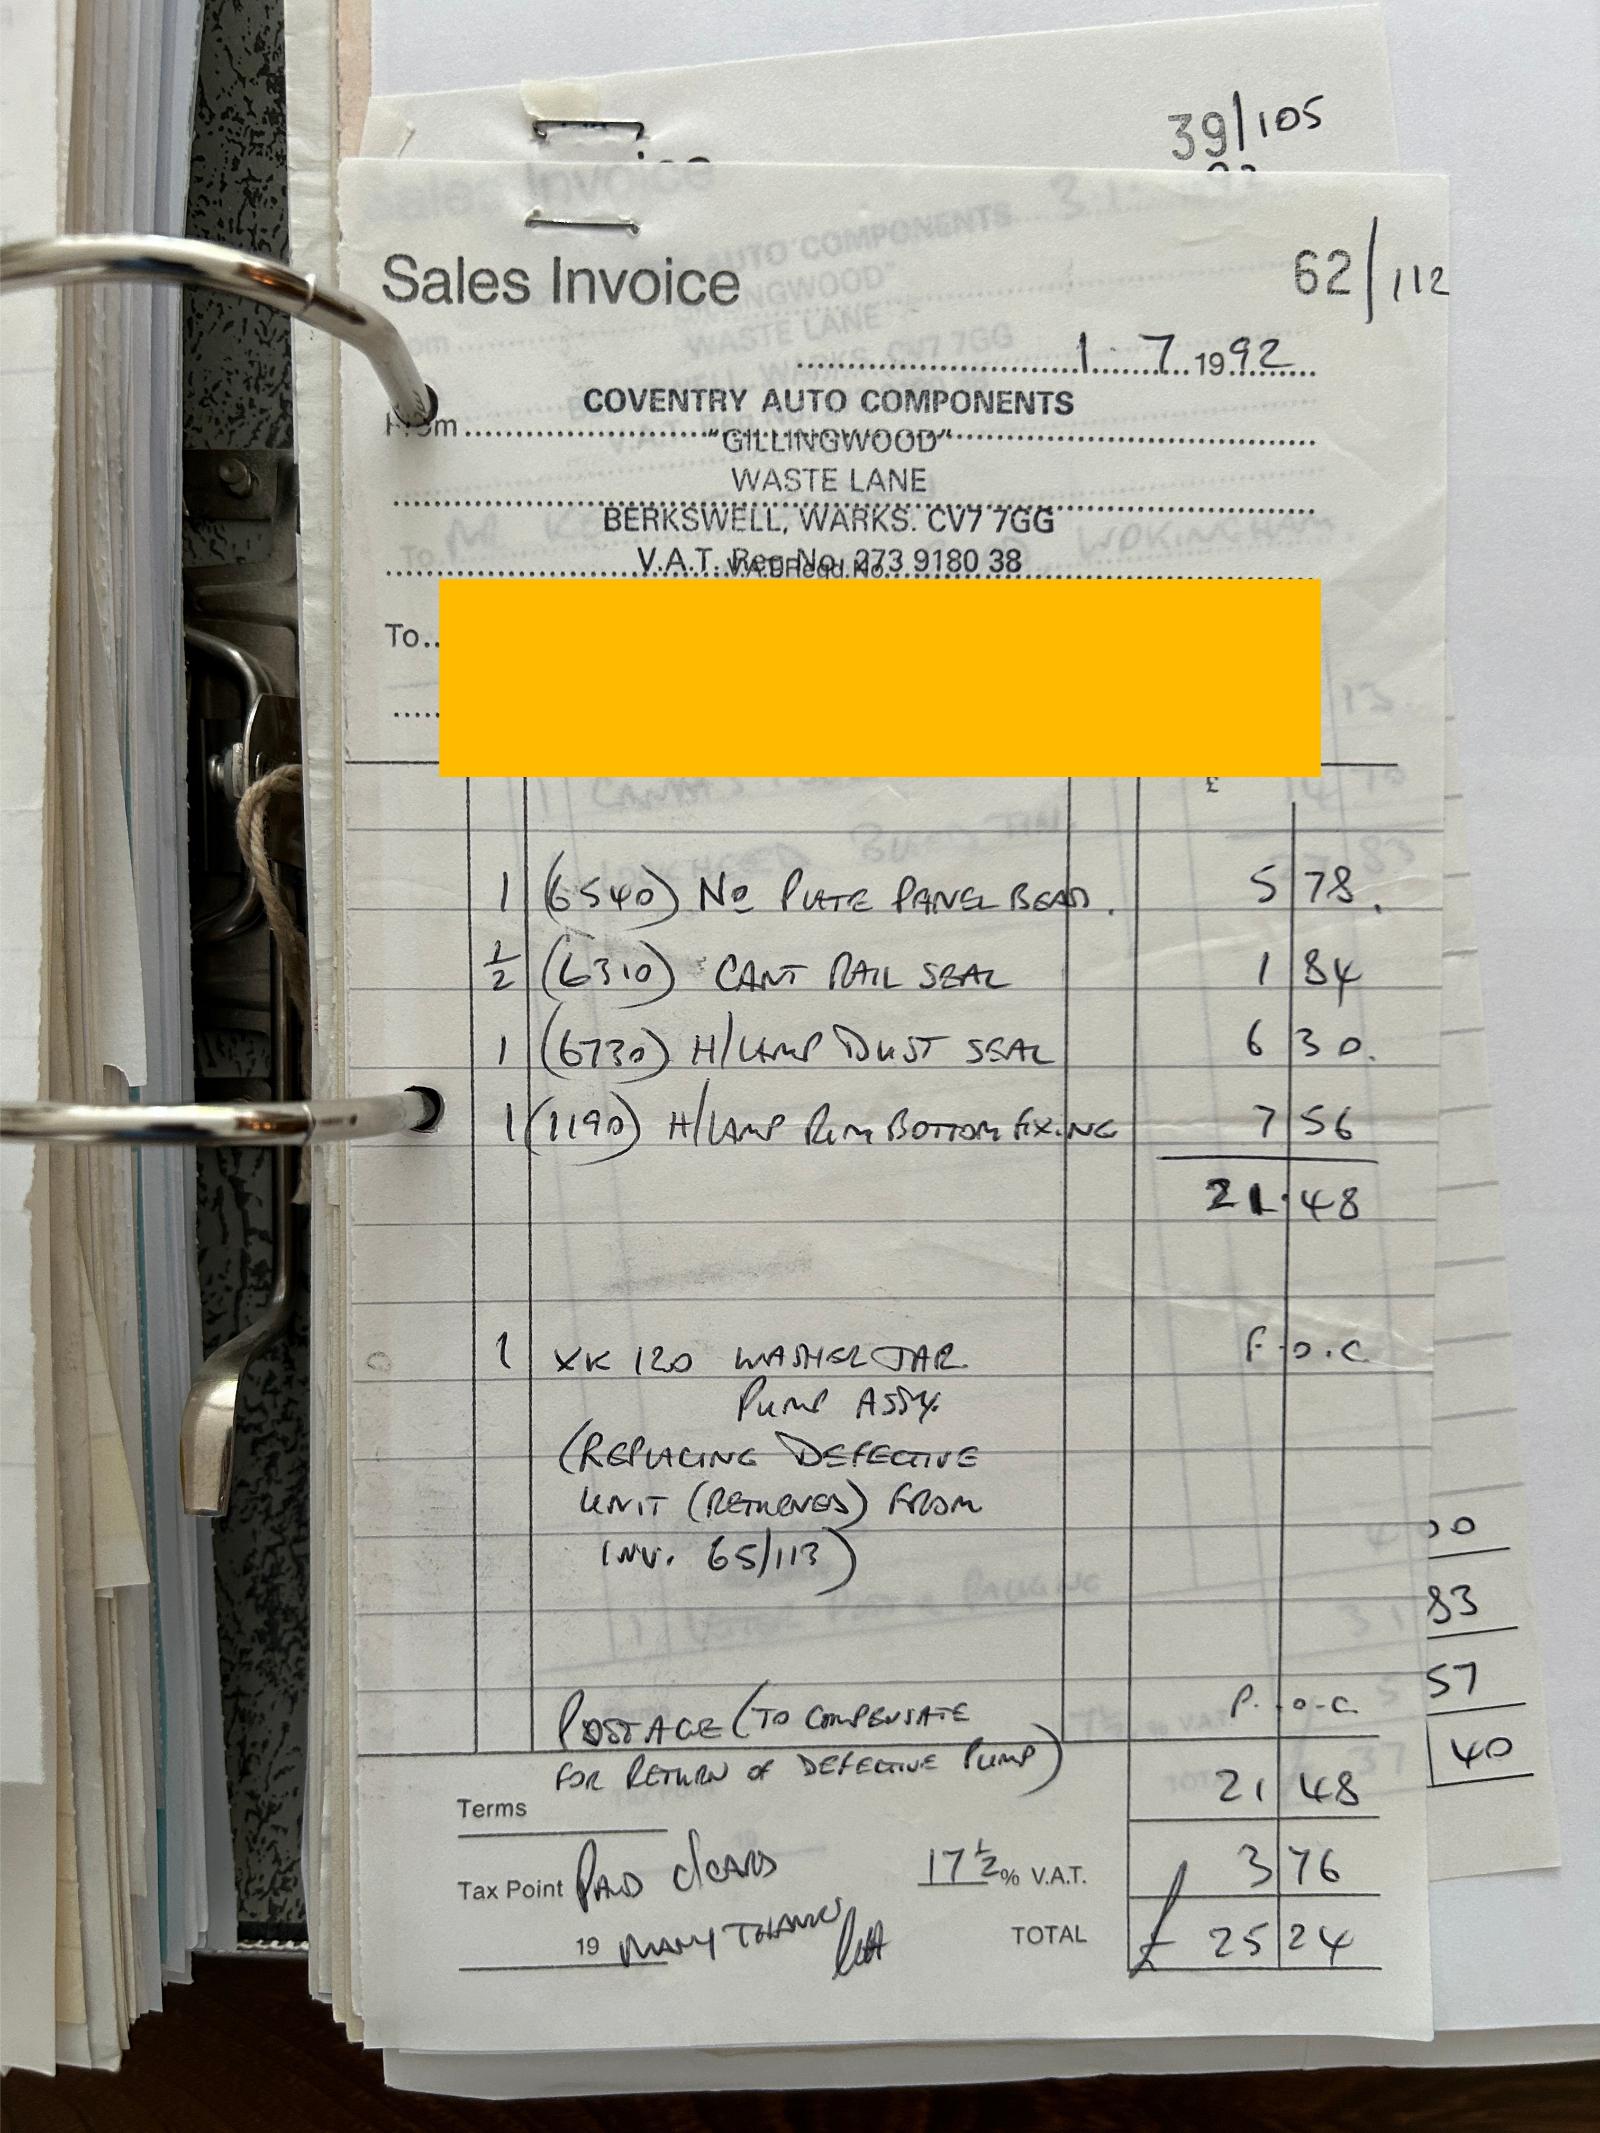 39/105
Sales Invoice
62/112
1·7.1992
From
COVENTRY AUTO COMPONENTS
"GILLINGWOOD"
WASTE LANE
BERKSWELL, WARKS. CV7 7GG
V.A.T. Reg No. 273 9180 38
To
£
1 (6540) No PLATE PANEL BEAD. 5 78.
½ (6310) CANT RAIL SEAL 1 84
1 (6730) H/LAMP DUST SEAL 6 30.
1 (1190) H/LAMP RIM BOTTOM FIXING 7 56
21·48
1 XK 120 WASHER JAR F.O.C.
PUMP ASSY.
(REPLACING DEFECTIVE
UNIT (RETURNED) FROM
INV. 65/113)
POSTAGE (TO COMPENSATE F.O.C.
FOR RETURN OF DEFECTIVE PUMP)
21 48
Terms
Tax Point PAID C/CARD 17½% V.A.T. 3 76
19 MANY THANKS TOTAL £ 25 24
83
57
40